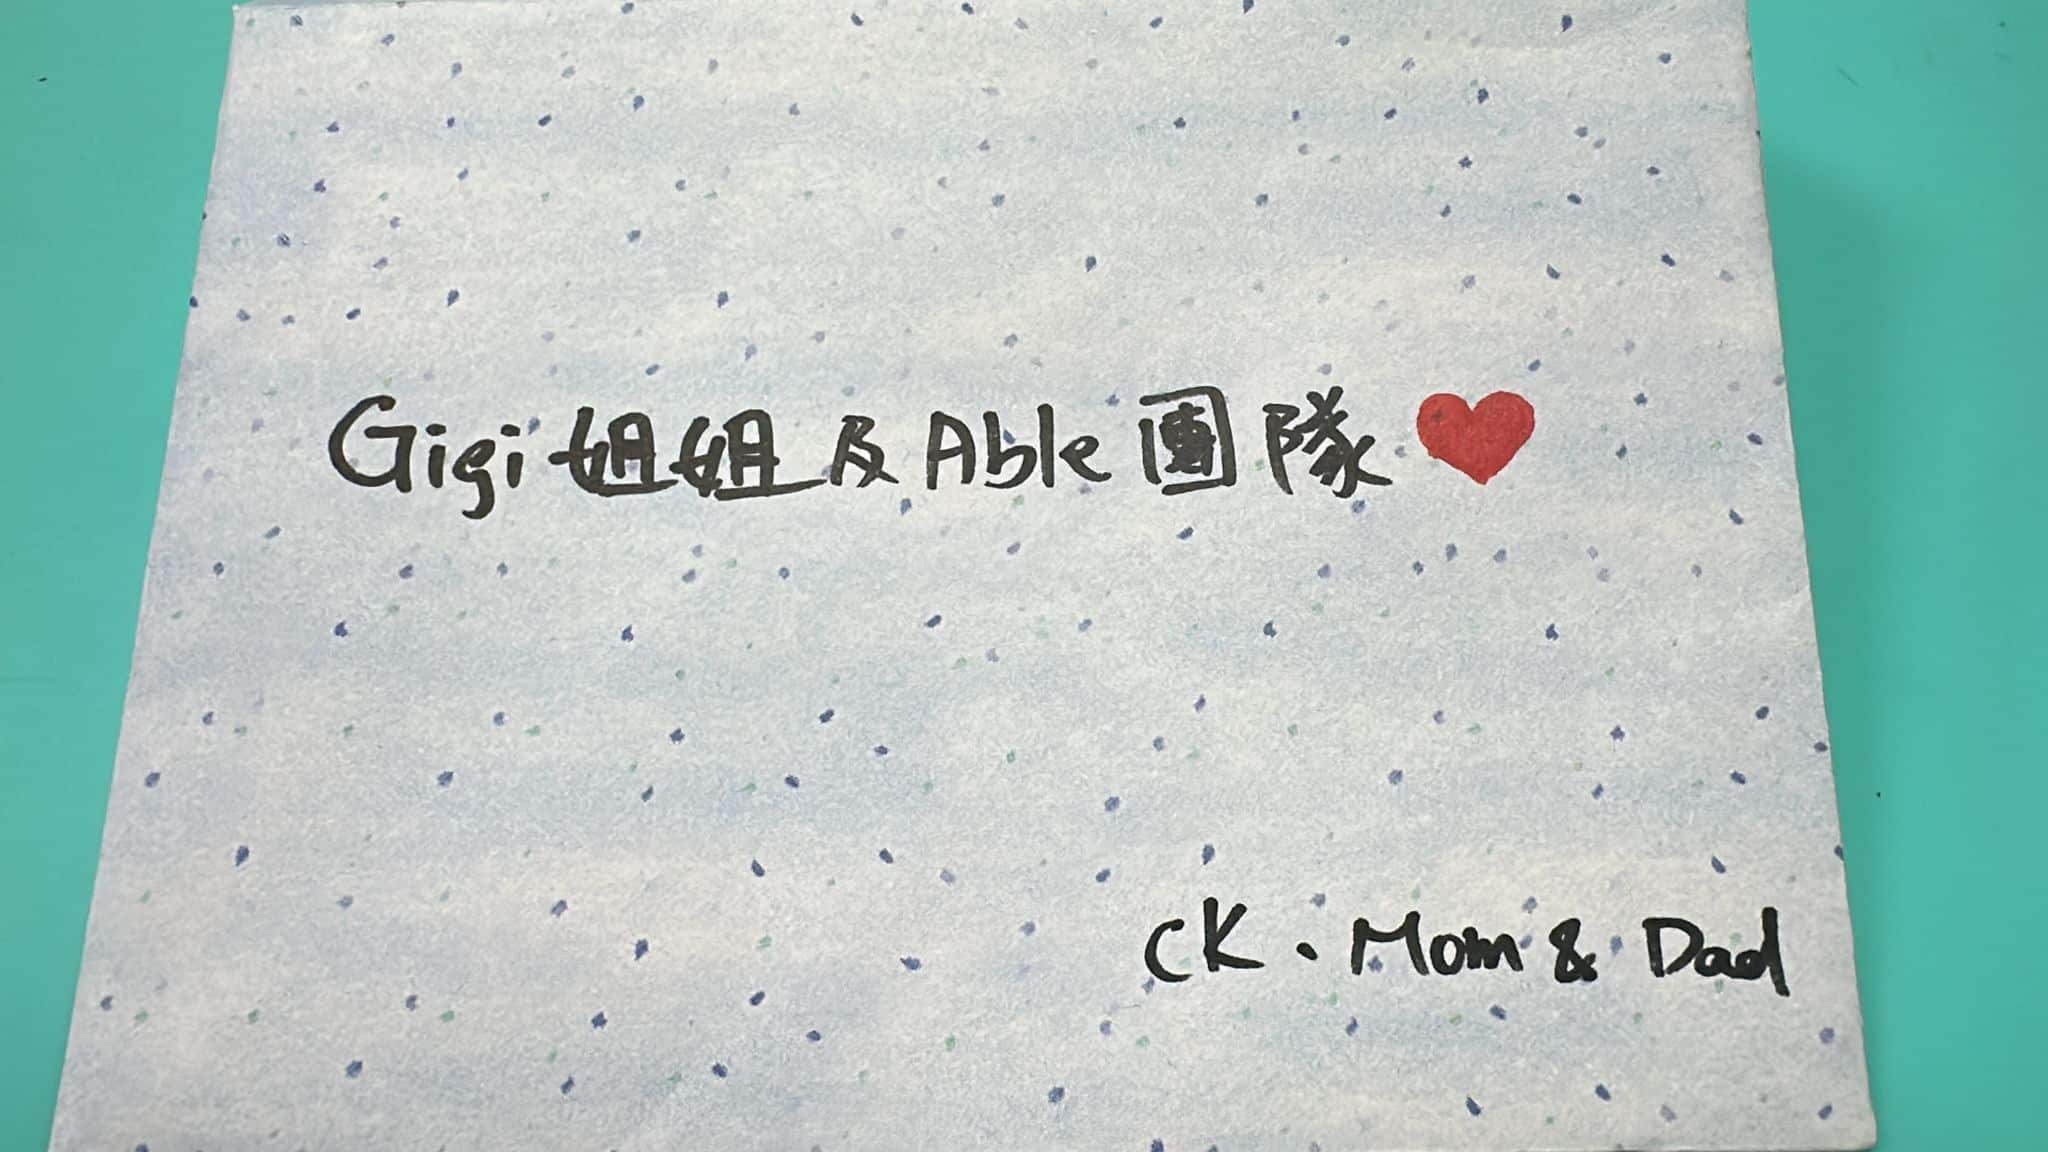 Gigi姐姐及Able團隊❤
CK · Mom & Dad